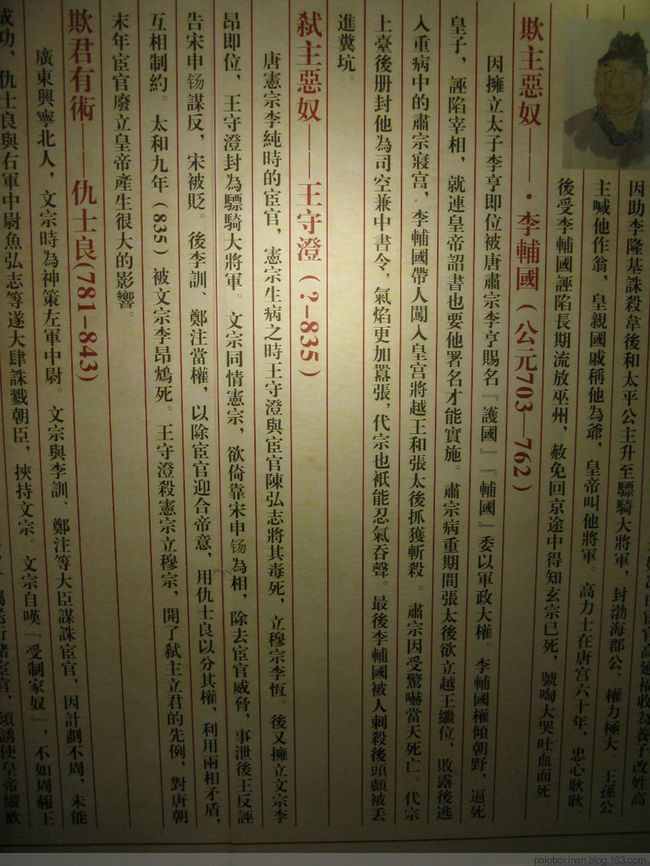 因助李隆基誅殺韋後和太平公主升至驃騎大將軍，封渤海郡公，權力極大 王孫公
主喊他作翁，皇親國戚稱他為爺，皇帝叫他將軍。高力士在唐宮六十年，忠心耿耿
後受李輔國誣陷長期流放巫州，赦免回京途中得知玄宗已死，號啕大哭吐血而死
欺主惡奴——·李輔國（公元703—762）
因擁立太子李亨即位被唐肅宗李亨賜名『護國』『輔國』委以軍政大權。李輔國權傾朝野，逼死
皇子，誣陷宰相，就連皇帝詔書也要他署名才能實施。肅宗病重期間張太後欲立越王繼位，敗露後逃
入重病中的肅宗寢宮，李輔國帶人闖入皇宮將越王和張太後抓獲斬殺。肅宗因受驚嚇當天死亡 代宗
上臺後册封他為司空兼中書令，氣焰更加囂張，代宗也衹能忍氣吞聲。最後李輔國被人刺殺後頭顱被丟
進糞坑。
弑主惡奴——王守澄（?-835）
唐憲宗李純時的宦官，憲宗生病之時王守澄與宦官陳弘志將其毒死，立穆宗李恆。後又擁立文宗李
昂即位，王守澄封為驃騎大將軍。文宗同情憲宗，欲倚靠宋申钖為相，除去宦官威脅，事泄後王反誣
告宋申钖謀反，宋被貶。後李訓、鄭注當權，以除宦官迎合帝意，用仇士良以分其權，利用兩相矛盾，
互相制約。太和九年（835）被文宗李昂鴆死。王守澄殺憲宗立穆宗，開了弑主立君的先例，對唐朝
末年宦官廢立皇帝產生很大的影響。
欺君有術 仇士良(781-843)
廣東興寧北人，文宗時為神策左軍中尉。文宗與李訓、鄭注等大臣謀誅宦官，因計劃不周，未能
成功，仇士良與右軍中尉魚弘志等遂大肆誅戮朝臣，挾持文宗。文宗自嘆『受制家奴』，不如周赧王
宦官，須誘使皇帝縱歡
paioboxinan.blog.163.com